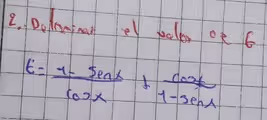 2. Determinar el valor de E
E = 1 - Senx / Cosx + Cosx / 1 - Senx